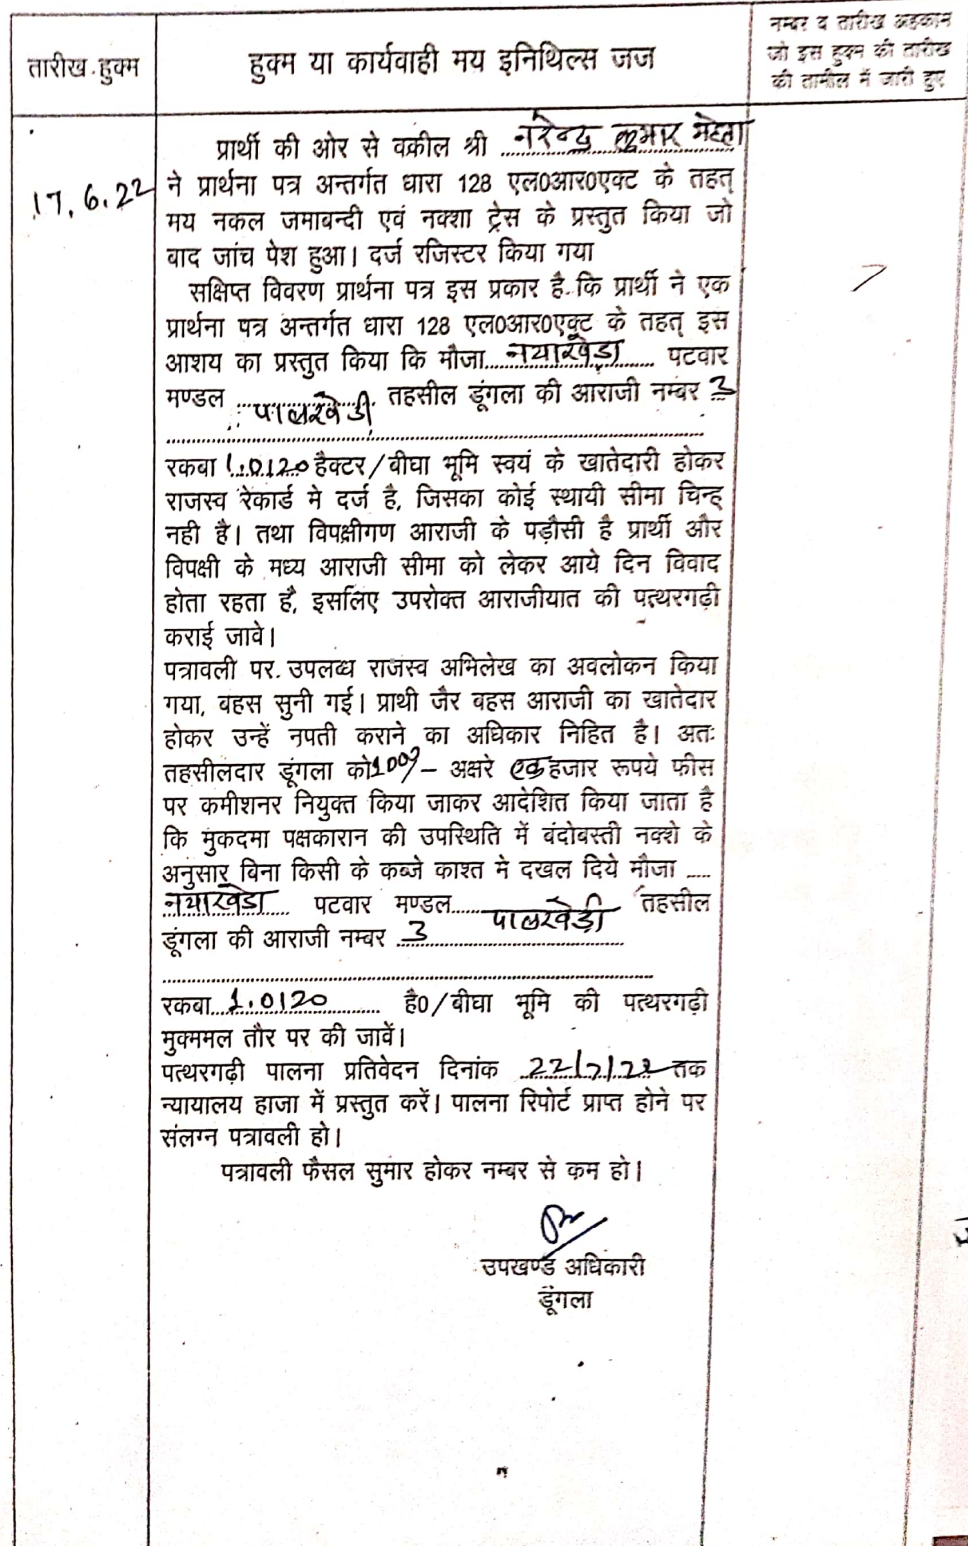 तारीख हुक्म
हुक्म या कार्यवाही मय इनिथिल्स जज
नम्बर व तारीख अहकाम
जो इस हुक्म की तारीख
की तामील में जारी हुए
17.6.22
प्रार्थी की ओर से वकील श्री नरेन्द्र कुमार मेहता
ने प्रार्थना पत्र अन्तर्गत धारा 128 एल0आर0एक्ट के तहत्
मय नकल जमाबन्दी एवं नक्शा ट्रेस के प्रस्तुत किया जो
बाद जांच पेश हुआ। दर्ज रजिस्टर किया गया
सक्षिप्त विवरण प्रार्थना पत्र इस प्रकार है कि प्रार्थी ने एक
प्रार्थना पत्र अन्तर्गत धारा 128 एल0आर0एक्ट के तहत् इस
आशय का प्रस्तुत किया कि मौजा नयाखेडा पटवार
मण्डल पालखेडी तहसील डूंगला की आराजी नम्बर 3
रकबा 1.0120 हैक्टर/बीघा भूमि स्वयं के खातेदारी होकर
राजस्व रेकार्ड मे दर्ज है, जिसका कोई स्थायी सीमा चिन्ह्
नही है। तथा विपक्षीगण आराजी के पड़ौसी है प्रार्थी और
विपक्षी के मध्य आराजी सीमा को लेकर आये दिन विवाद
होता रहता है, इसलिए उपरोक्त आराजीयात की पत्थरगढ़ी
कराई जावे।
पत्रावली पर उपलब्ध राजस्व अभिलेख का अवलोकन किया
गया, बहस सुनी गई। प्राथी जैर बहस आराजी का खातेदार
होकर उन्हें नपती कराने का अधिकार निहित है। अतः
तहसीलदार डूंगला को 1000/- अक्षरे एक हजार रूपये फीस
पर कमीशनर नियुक्त किया जाकर आदेशित किया जाता है
कि मुकदमा पक्षकारान की उपस्थिति में बंदोबस्ती नक्शे के
अनुसार बिना किसी के कब्जे काश्त मे दखल दिये मौजा
नयाखेडा पटवार मण्डल पालखेडी तहसील
डूंगला की आराजी नम्बर 3
रकबा 1.0120 है0/बीघा भूमि की पत्थरगढ़ी
मुक्ममल तौर पर की जावें।
पत्थरगढ़ी पालना प्रतिवेदन दिनांक 22/7/22 तक
न्यायालय हाजा में प्रस्तुत करें। पालना रिपोर्ट प्राप्त होने पर
संलग्न पत्रावली हो।
पत्रावली फैसल सुमार होकर नम्बर से कम हो।
उपखण्ड अधिकारी
डूंगला